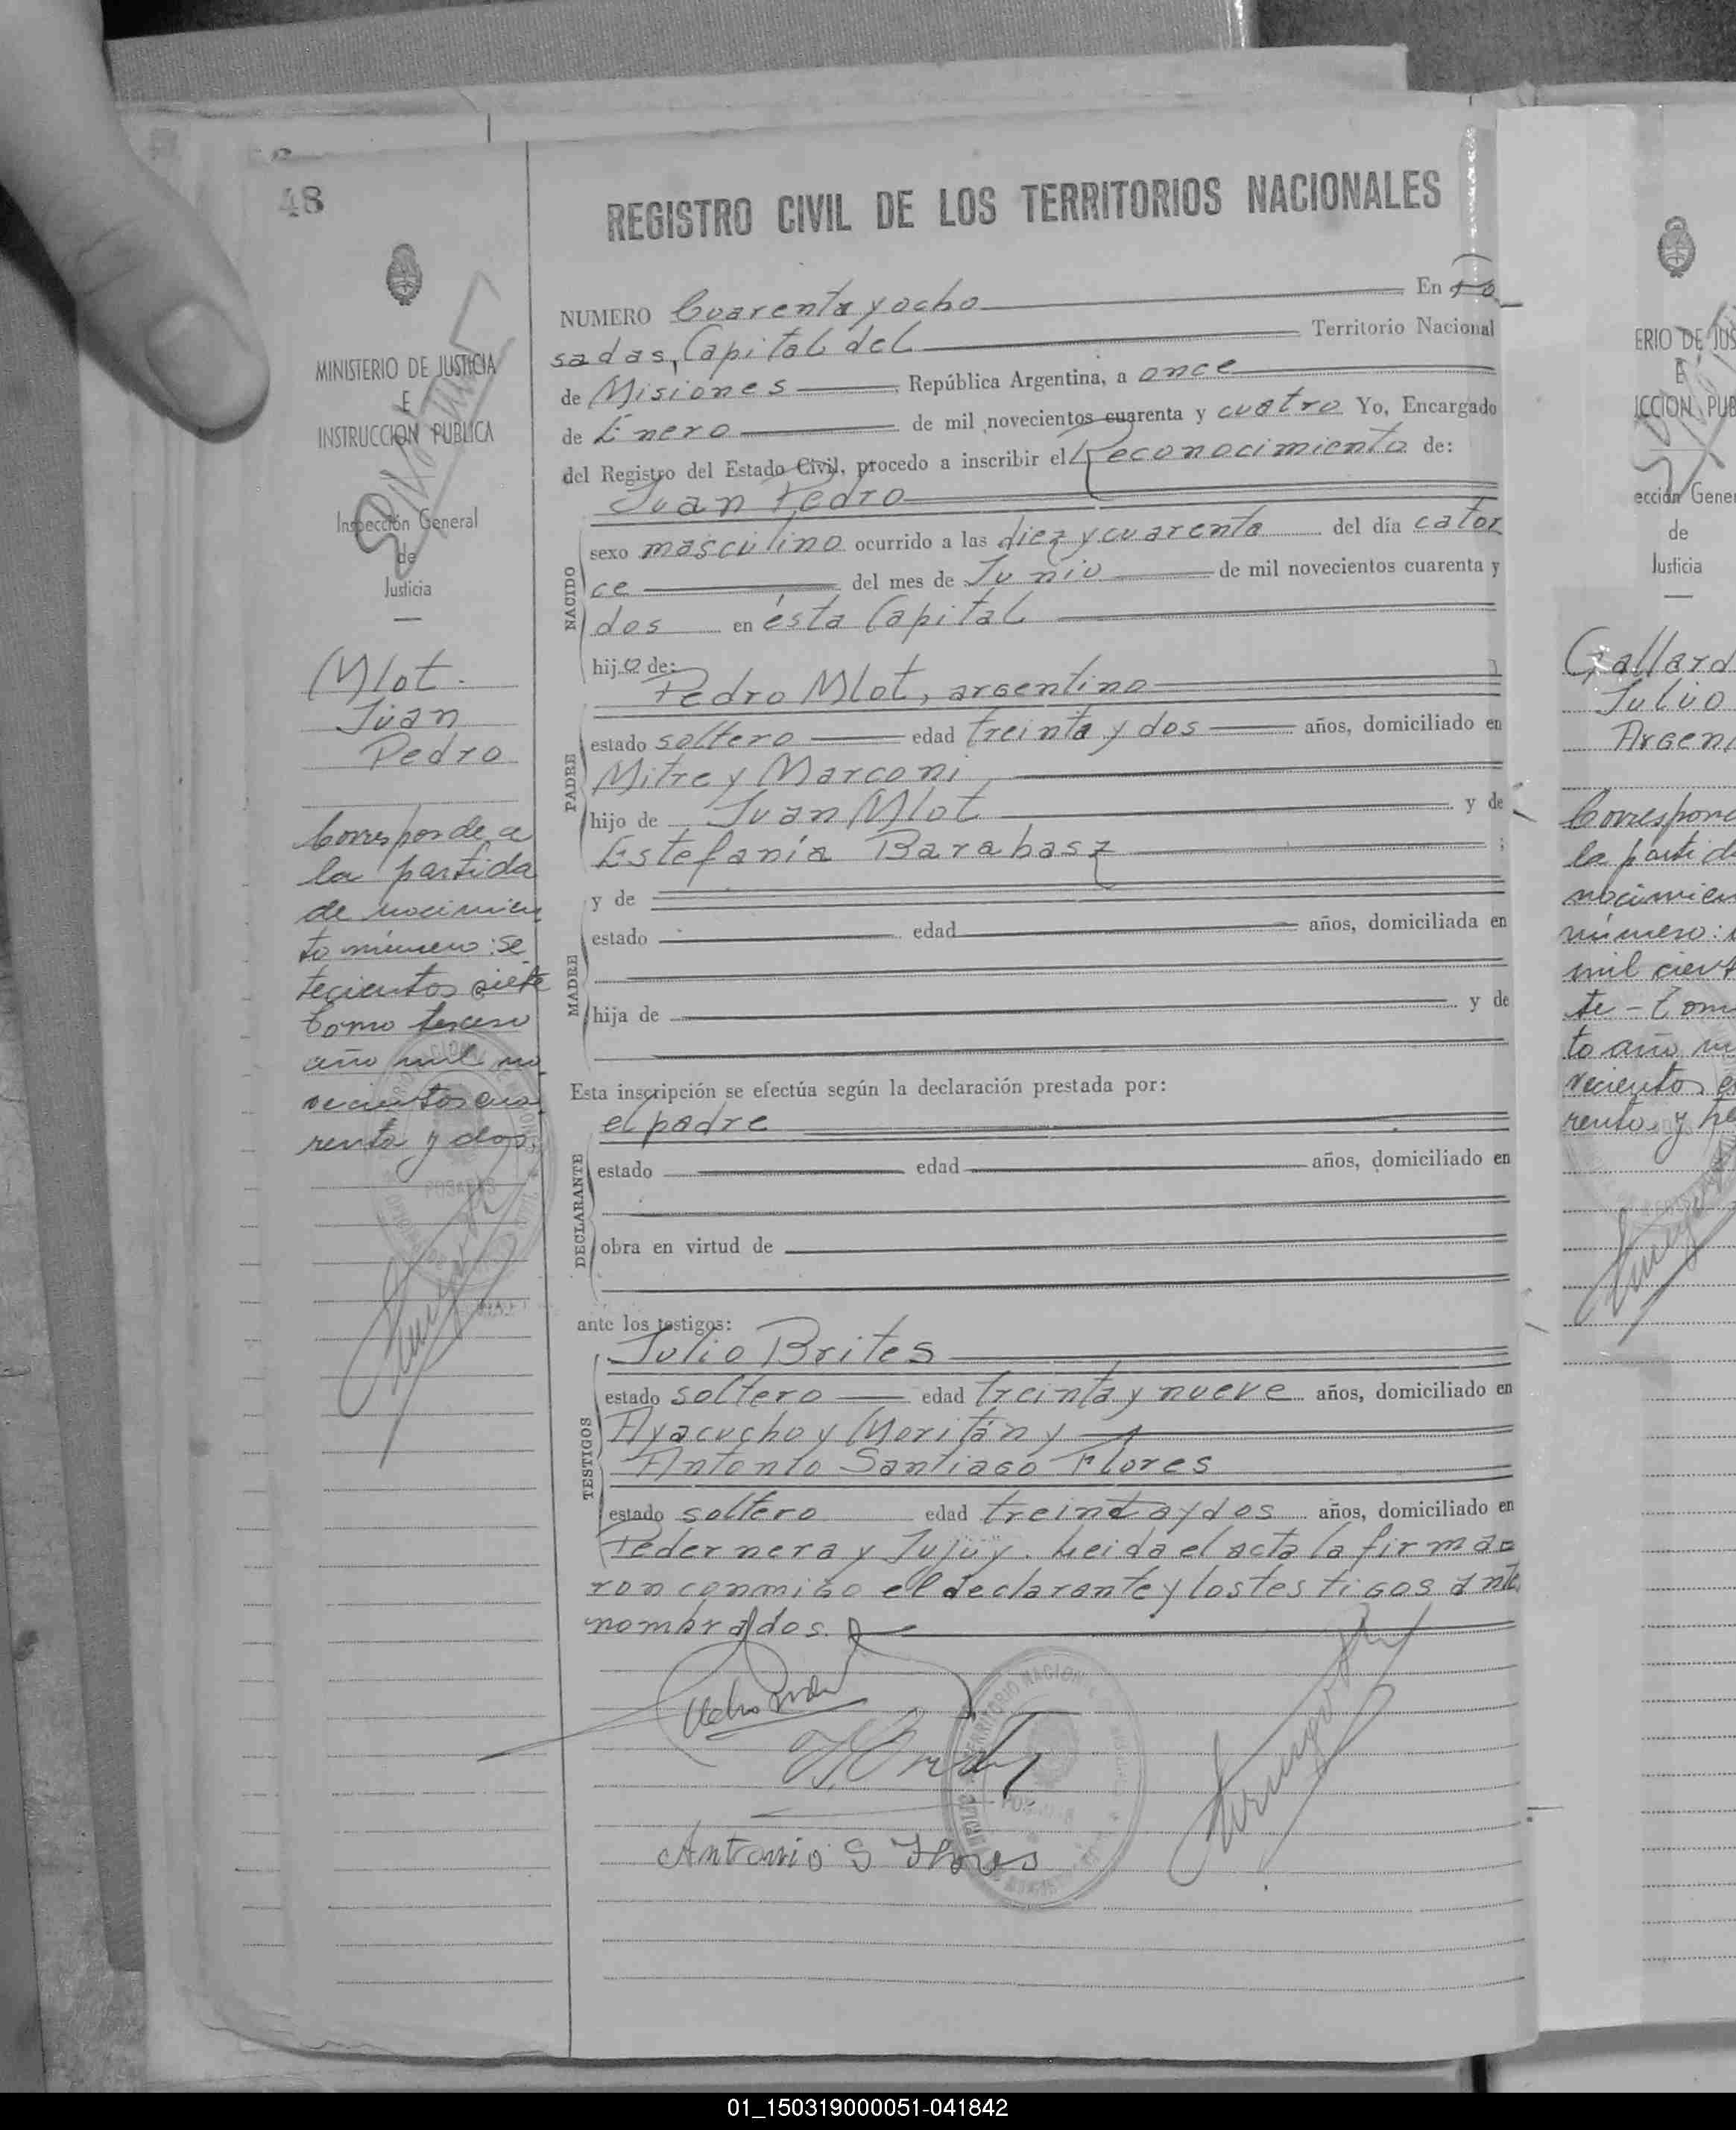 48
MINISTERIO DE JUSTICIA
E
INSTRUCCION PUBLICA
Inspección General
de
Justicia
Mlot.
Juan
Pedro
Corresponde a
la partida
de nacimien
to número: se
tecientos siete
tomo tercero
año mil no
vecientos cua
renta y dos.
REGISTRO CIVIL DE LOS TERRITORIOS NACIONALES
NUMERO Cuarenta y ocho En Po
sadas, Capital del Territorio Nacional
de Misiones, República Argentina, a once
de Enero de mil novecientos cuarenta y cuatro Yo, Encargado
del Registro del Estado Civil, procedo a inscribir el Reconocimiento de:
Juan Pedro
NACIDO
sexo masculino ocurrido a las diez y cuarenta del día cator
ce del mes de Junio de mil novecientos cuarenta y
dos en ésta Capital
hijo de:
PADRE
Pedro Mlot, argentino
estado soltero edad treinta y dos años, domiciliado en
Mitre y Marconi
hijo de Juan Mlot y de
Estefanía Barabasz ;
MADRE
y de
estado edad años, domiciliada en
hija de y de
Esta inscripción se efectúa según la declaración prestada por:
DECLARANTE
el padre
estado edad años, domiciliado en
obra en virtud de
ante los testigos:
TESTIGOS
Julio Brites
estado soltero edad treinta y nueve años, domiciliado en
Ayacucho y Moritán y
Antonio Santiago Flores
estado soltero edad treinta y dos años, domiciliado en
Pedernera y Jujuy. Leida el acta la firma=
ron conmigo el declarante y los testigos ante
nombrados.
POSADAS
Antonio S Flores
ERIO DE JUS
E
ICCION PUB
ección Gener
de
Justicia
Gallard
Julio
Argen
Correspond
la partid
nacimien
número:
mil cient
te - tom
to año m
vecientos
renta y
01_150319000051-041842